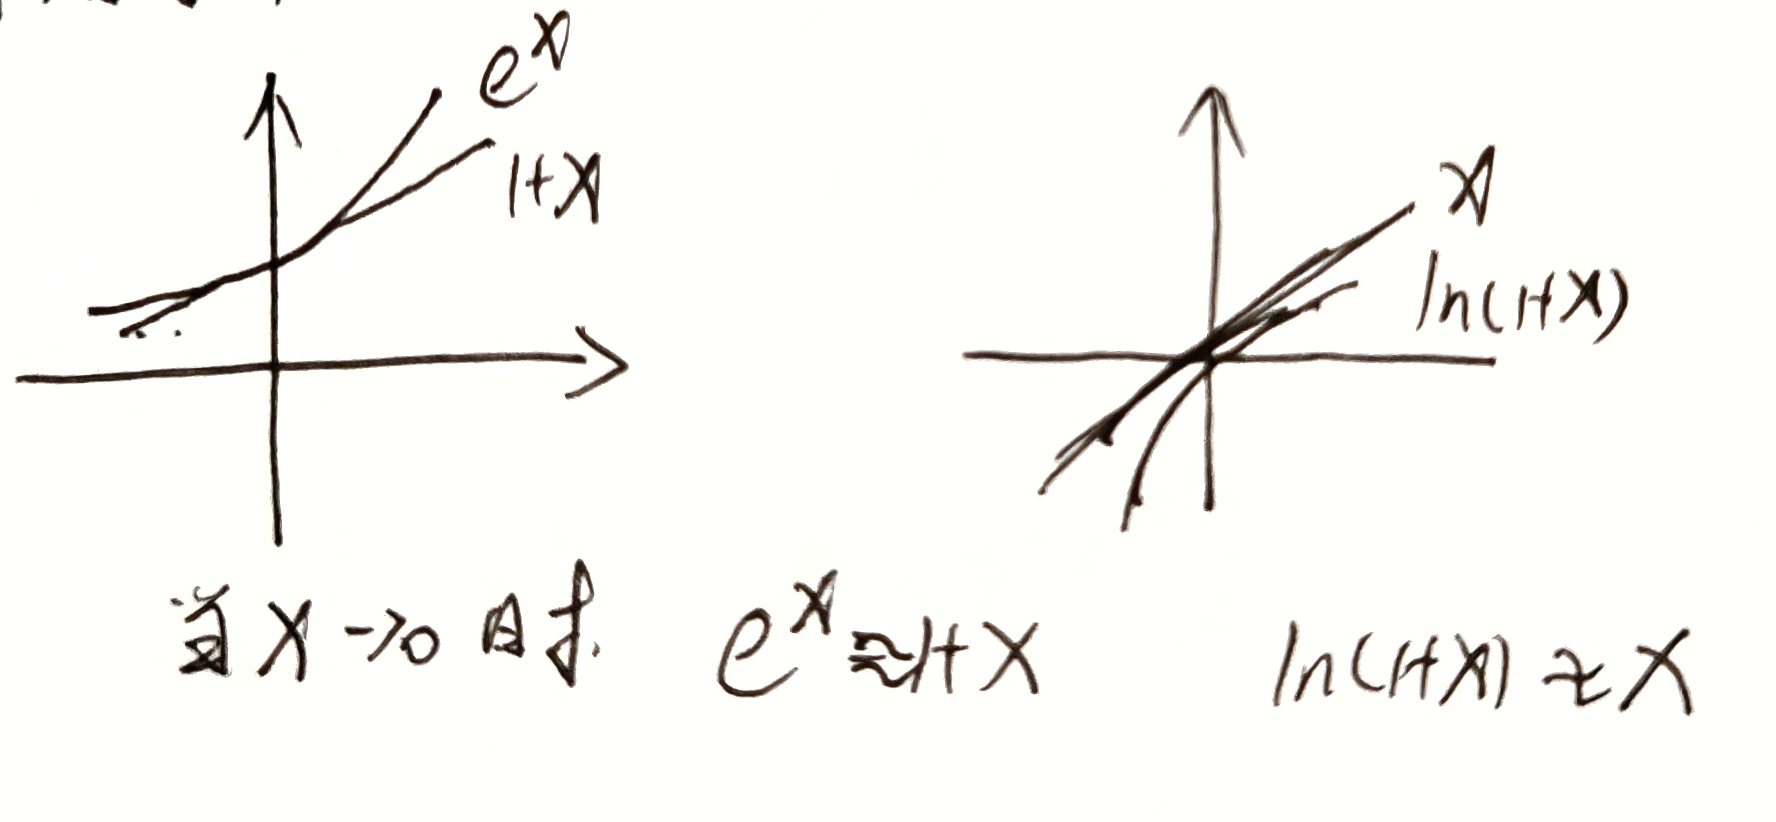 e^x
1+x
x
ln(1+x)
当 x→0 时. e^x≈1+x ln(1+x)≈x